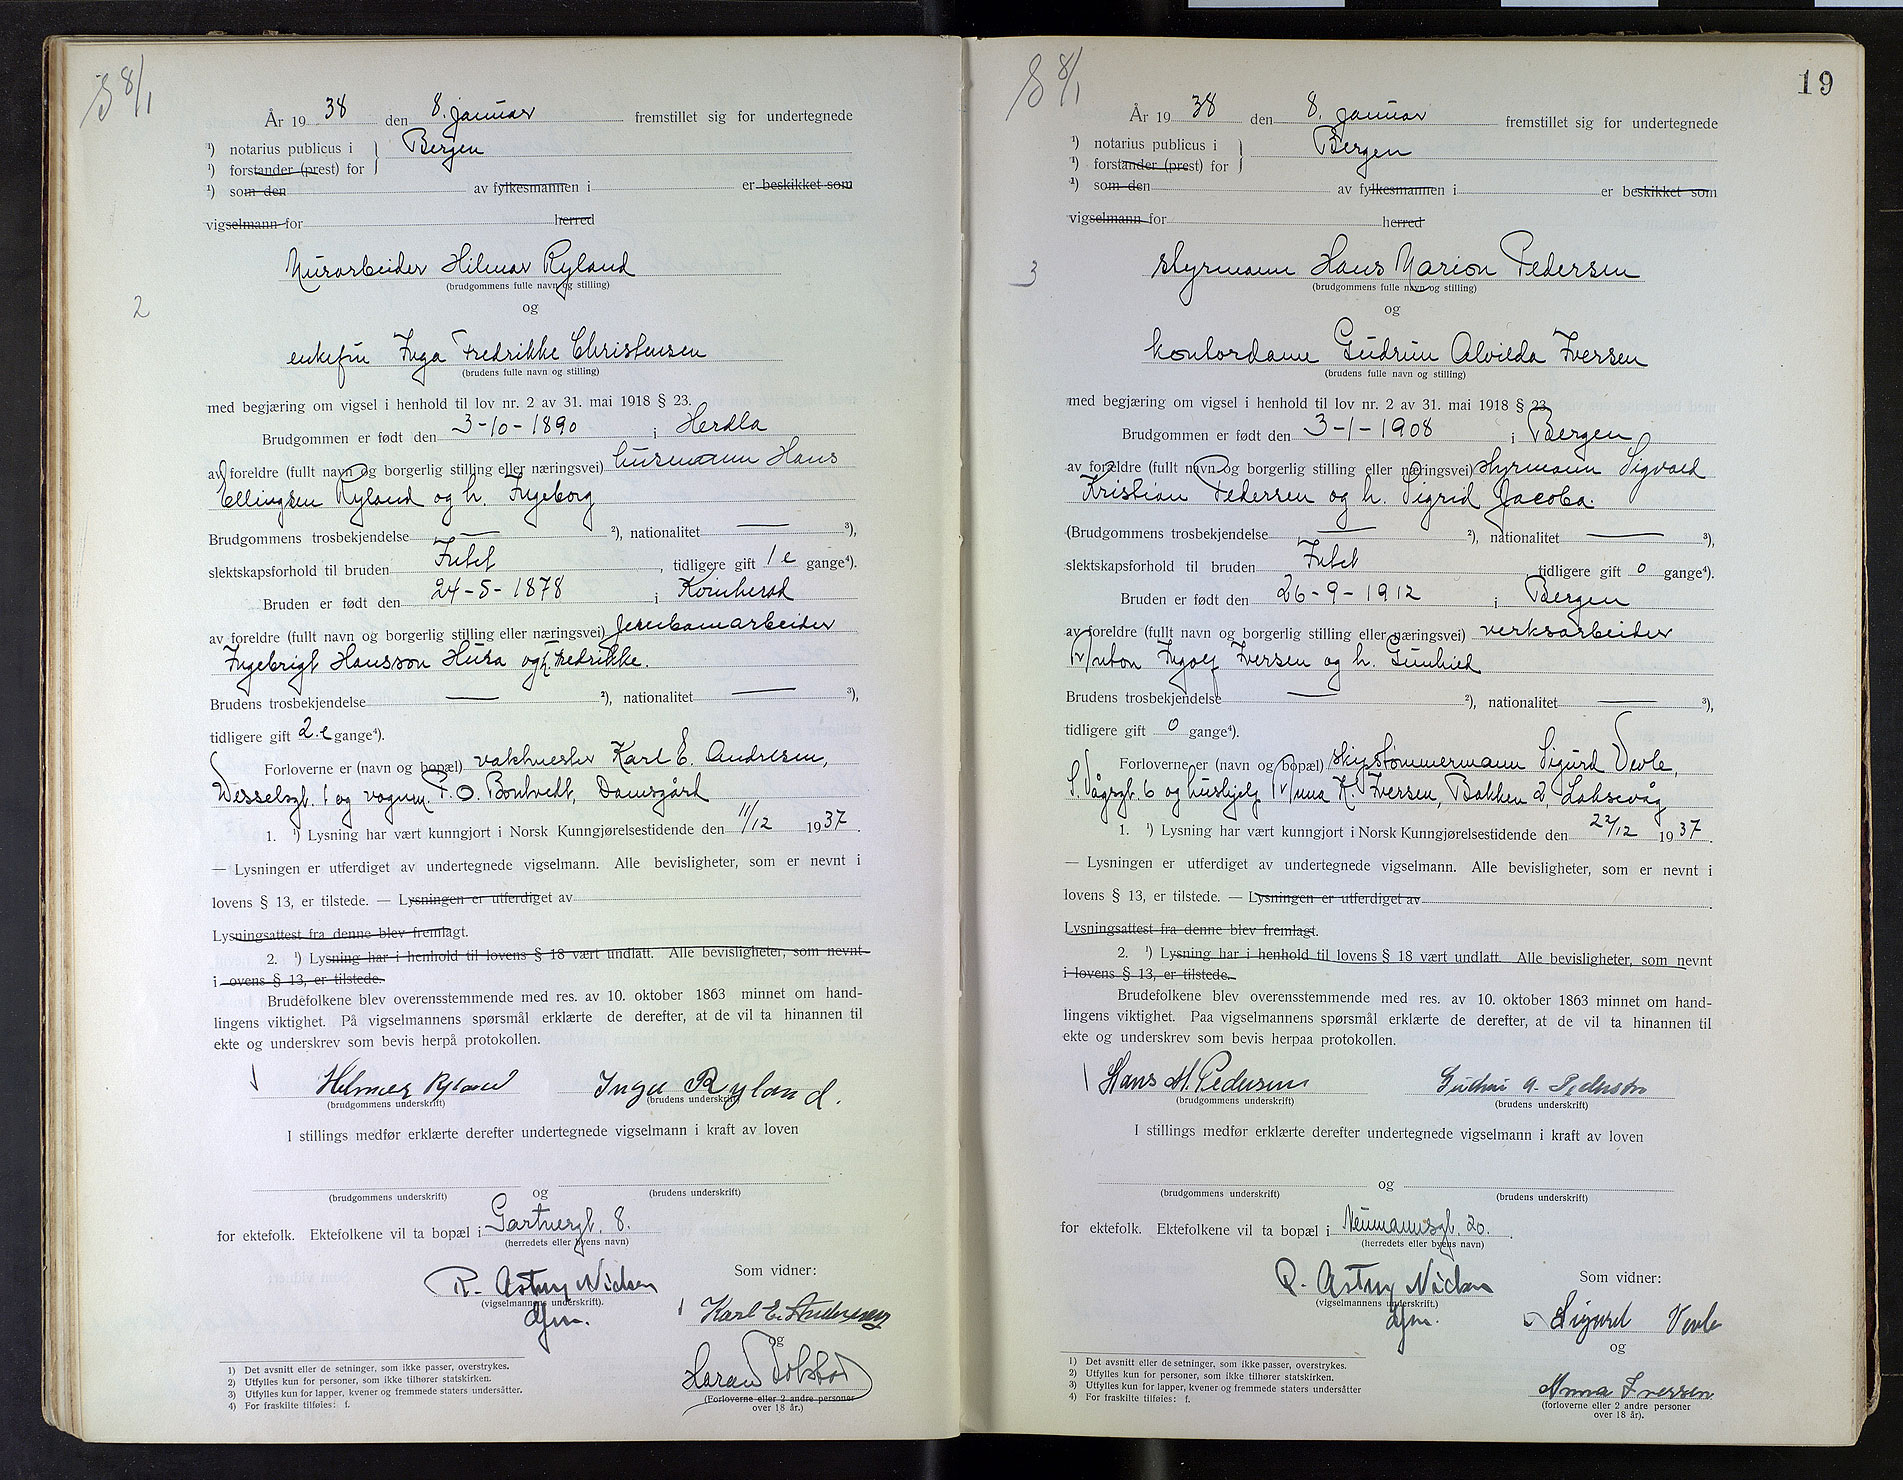 8/1
År 1938 den 8. januar fremstillet sig for undertegnede
¹) notarius publicus i } Bergen
¹) forstander (prest) for
¹) som den av fylkesmannen i er beskikket som
vigselmann for herred
Murarbeider Hilmar Ryland
(brudgommens fulle navn og stilling)
2
og
enkefru Inga Fredrikke Christensen
(brudens fulle navn og stilling)
med begjæring om vigsel i henhold til lov nr. 2 av 31. mai 1918 § 23.
Brudgommen er født den 3-10-1890 i Herdla
av foreldre (fullt navn og borgerlig stilling eller næringsvei) husmann Hans
Ellingsen Ryland og h. Ingeborg
Brudgommens trosbekjendelse — ²), nationalitet — ³),
slektskapsforhold til bruden Intet, tidligere gift 1 e gange⁴).
Bruden er født den 24-5-1878 i Kvinherad
av foreldre (fullt navn og borgerlig stilling eller næringsvei) Jernbanearbeider
Ingebrigt Hansson Husa og h. Fredrikke.
Brudens trosbekjendelse — ²), nationalitet — ³),
tidligere gift 2.e gange⁴).
Forloverne er (navn og bopæl) vaktmester Karl E. Andresen,
Wesselsgt. 1 og vognm. P. O. Bontvedt, Damsgård
1. ¹) Lysning har vært kunngjort i Norsk Kunngjørelsestidende den 11/12 1937.
— Lysningen er utferdiget av undertegnede vigselmann. Alle bevisligheter, som er nevnt i
lovens § 13, er tilstede. — Lysningen er utferdiget av
Lysningsattest fra denne blev fremlagt.
2. ¹) Lysning har i henhold til lovens § 18 vært undlatt. Alle bevisligheter, som nevnt
i ovens § 13, er tilstede.
Brudefolkene blev overensstemmende med res. av 10. oktober 1863 minnet om hand-
lingens viktighet. På vigselmannens spørsmål erklærte de derefter, at de vil ta hinannen til
ekte og underskrev som bevis herpå protokollen.
Hilmar Ryland Inga Ryland.
(brudgommens underskrift) (brudens underskrift)
I stillings medfør erklærte derefter undertegnede vigselmann i kraft av loven
og
(brudgommens underskrift) (brudens underskrift)
for ektefolk. Ektefolkene vil ta bopæl i Gartnergt. 8.
(herredets eller byens navn)
Som vidner:
R. Astrup Nielsen
(vigselmannens underskrift).
Karl E. Andresen
og
(Forloverne eller 2 andre personer
over 18 år.)
1) Det avsnitt eller de setninger, som ikke passer, overstrykes.
2) Utfylles kun for personer, som ikke tilhører statskirken.
3) Utfylles kun for lapper, kvener og fremmede staters undersåtter.
4) For fraskilte tilføies: f.
8/1
19
År 1938 den 8. januar fremstillet sig for undertegnede
¹) notarius publicus i } Bergen
¹) forstander (prest) for
¹) som den av fylkesmannen i er beskikket som
vigselmann for herred
styrmann Hans Marion Pedersen
(brudgommens fulle navn og stilling)
3
og
kontordame Gudrun Alvilda Iversen
(brudens fulle navn og stilling)
med begjæring om vigsel i henhold til lov nr. 2 av 31. mai 1918 § 23.
Brudgommen er født den 3-1-1908 i Bergen
av foreldre (fullt navn og borgerlig stilling eller næringsvei) styrmann Sigvald
Kristian Pedersen og h. Sigrid Jacoba.
(Brudgommens trosbekjendelse — ²), nationalitet — ³),
slektskapsforhold til bruden Intet, tidligere gift 0 gange⁴).
Bruden er født den 26-9-1912 i Bergen
av foreldre (fullt navn og borgerlig stilling eller næringsvei) verksarbeider
Anton Ingolf Iversen og h. Gunhild
Brudens trosbekjendelse — ²), nationalitet — ³),
tidligere gift 0 gange⁴).
Forloverne er (navn og bopæl) skipstømmermann Sigurd Vevle,
S. Vågsgt. 6 og hushjelp Anna K. Iversen, Bakken 2, Laksevåg
1. ¹) Lysning har vært kunngjort i Norsk Kunngjørelsestidende den 22/12 1937.
— Lysningen er utferdiget av undertegnede vigselmann. Alle bevisligheter, som er nevnt i
lovens § 13, er tilstede. — Lysningen er utferdiget av
Lysningsattest fra denne blev fremlagt.
2. ¹) Lysning har i henhold til lovens § 18 vært undlatt. Alle bevisligheter, som nevnt
i lovens § 13, er tilstede.
Brudefolkene blev overensstemmende med res. av 10. oktober 1863 minnet om hand-
lingens viktighet. Paa vigselmannens spørsmål erklærte de derefter, at de vil ta hinannen til
ekte og underskrev som bevis herpaa protokollen.
Hans M. Pedersen Gudrun A. Pedersen
(brudgommens underskrift) (brudens underskrift)
I stillings medfør erklærte derefter undertegnede vigselmann i kraft av loven
og
(brudgommens underskrift) (brudens underskrift)
for ektefolk. Ektefolkene vil ta bopæl i Neumannsgt. 20.
(herredets eller byens navn)
Som vidner:
R. Astrup Nielsen
(vigselmannens underskrift.)
Sigurd Vevle
og
Anna Iversen
(forloverne eller 2 andre personer
over 18 år).
1) Det avsnitt eller de setninger, som ikke passer, overstrykes.
2) Utfylles kun for personer, som ikke tilhører statskirken.
3) Utfylles kun for lapper, kvener og fremmede staters undersåtter
4) For fraskilte tilføies: f.